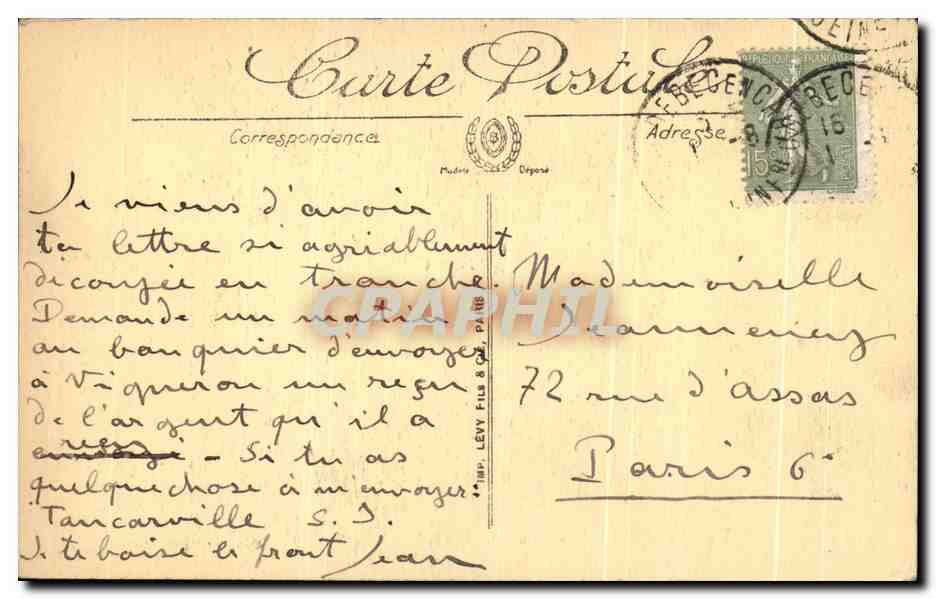 Carte Postale
Correspondance
Adresse
Modèle Déposé
REPUBLIQUE FRANÇAISE
15
Je viens d'avoir
ta lettre si agriablement
découpée en tranche.
Demande un matin
au banquier d'envoyer
à Vigneron un reçu
de l'argent qu'il a
reçu
envoyé - Si tu as
quelquechose à m'envoyer
Tancarville S. I.
Je te baise le front Jean
IMP. LÉVY FILS & CIE, PARIS
Mademoiselle
72 rue d'Assas
Paris 6e
CPAPHIL